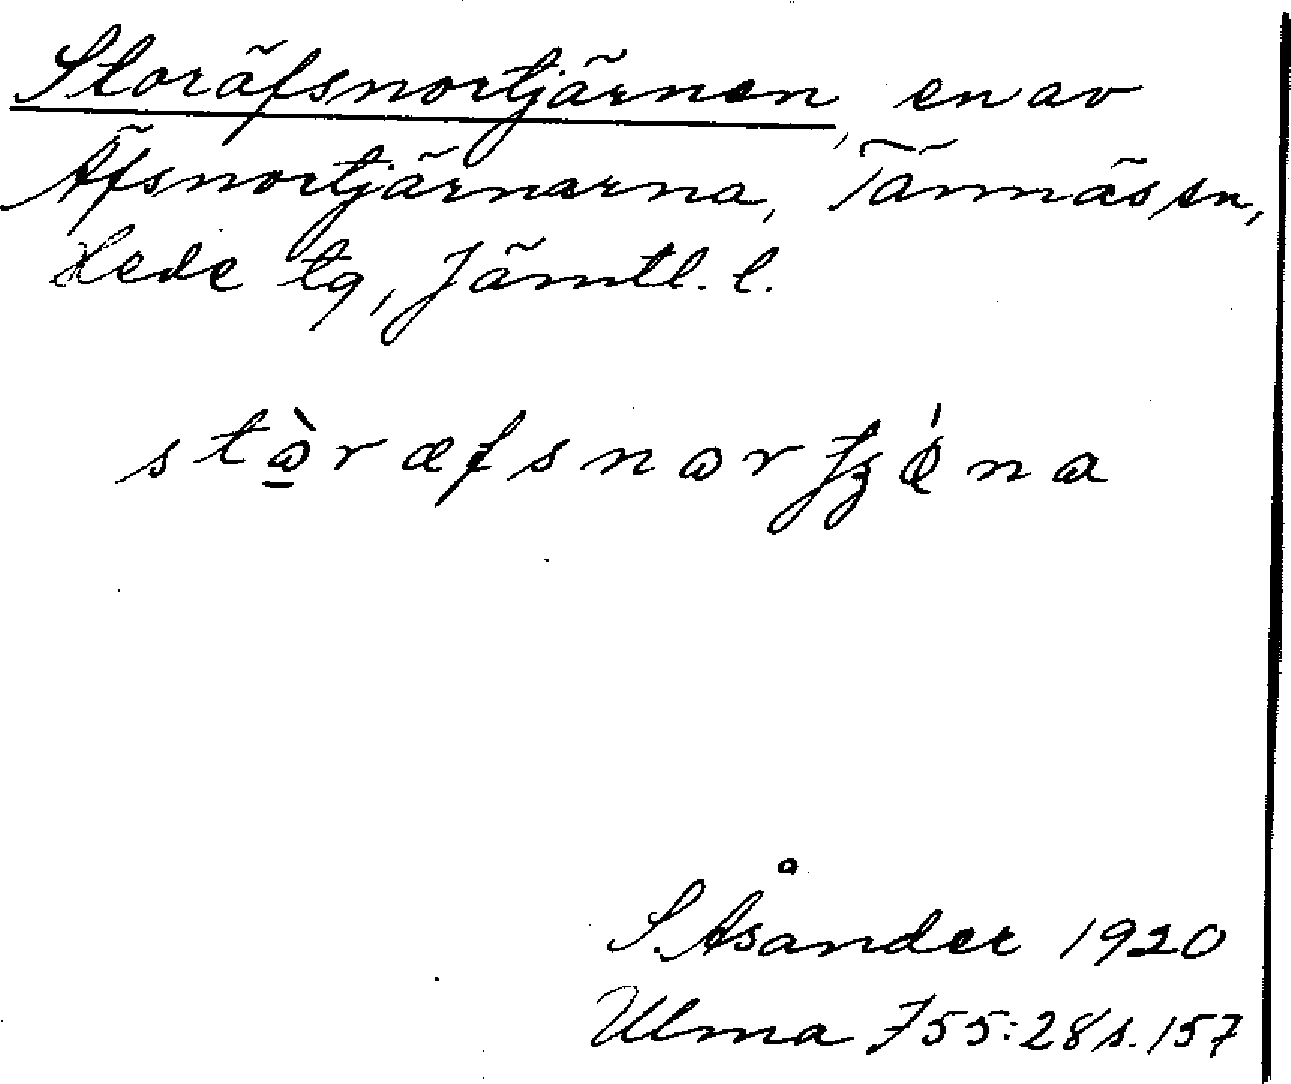 Storäfsnortjärnen, en av
Äfsnortjärnarna, Tännäs sn,
Hede tg, Jämtl. l.
S. Åsander 1920
Ulma 755:28 s. 157